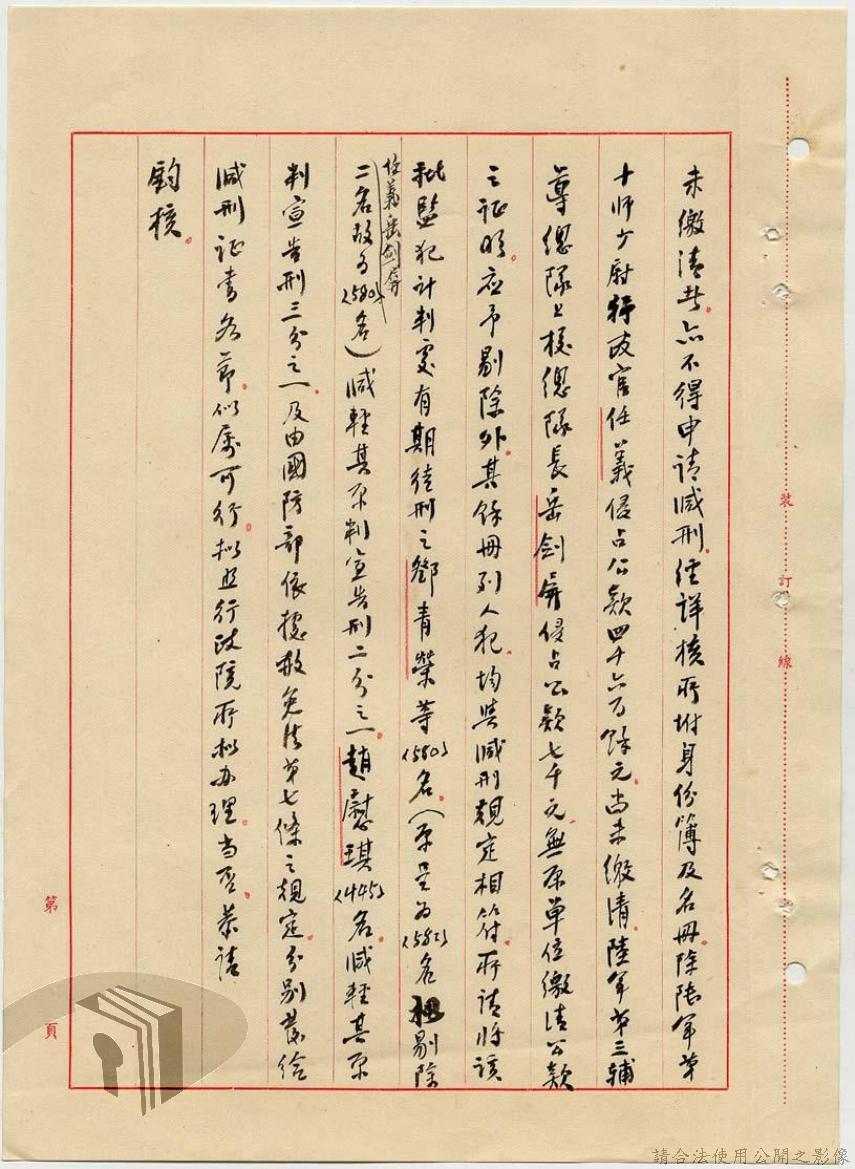 未繳清者。亦不得申請減刑。經詳核所附身份簿及名冊。除陸軍第
十師少尉行政官任義侵占公款四千六百餘元。尚未繳清。陸軍第三輔
導總隊上校總隊長岳劍屏侵占公款七千元。無原單位繳清公款
之证明。应予剔除外。其餘冊列人犯。均與減刑規定相符。所請將該
批監犯計判處有期徒刑之鄧青榮等(580)名(原呈為(582)名剔除
任義岳劍屏
二名故為(580)名)減輕其原判宣告刑二分之一。趙慰琪(445)名。減輕其原
判宣告刑三分之一。及由國防部依據赦免法第七條之規定。分別發給
減刑证書各節。似屬可行。擬照行政院所擬办理。當否。恭請
鈞核。
裝訂線
第 頁
請合法使用公開之影像